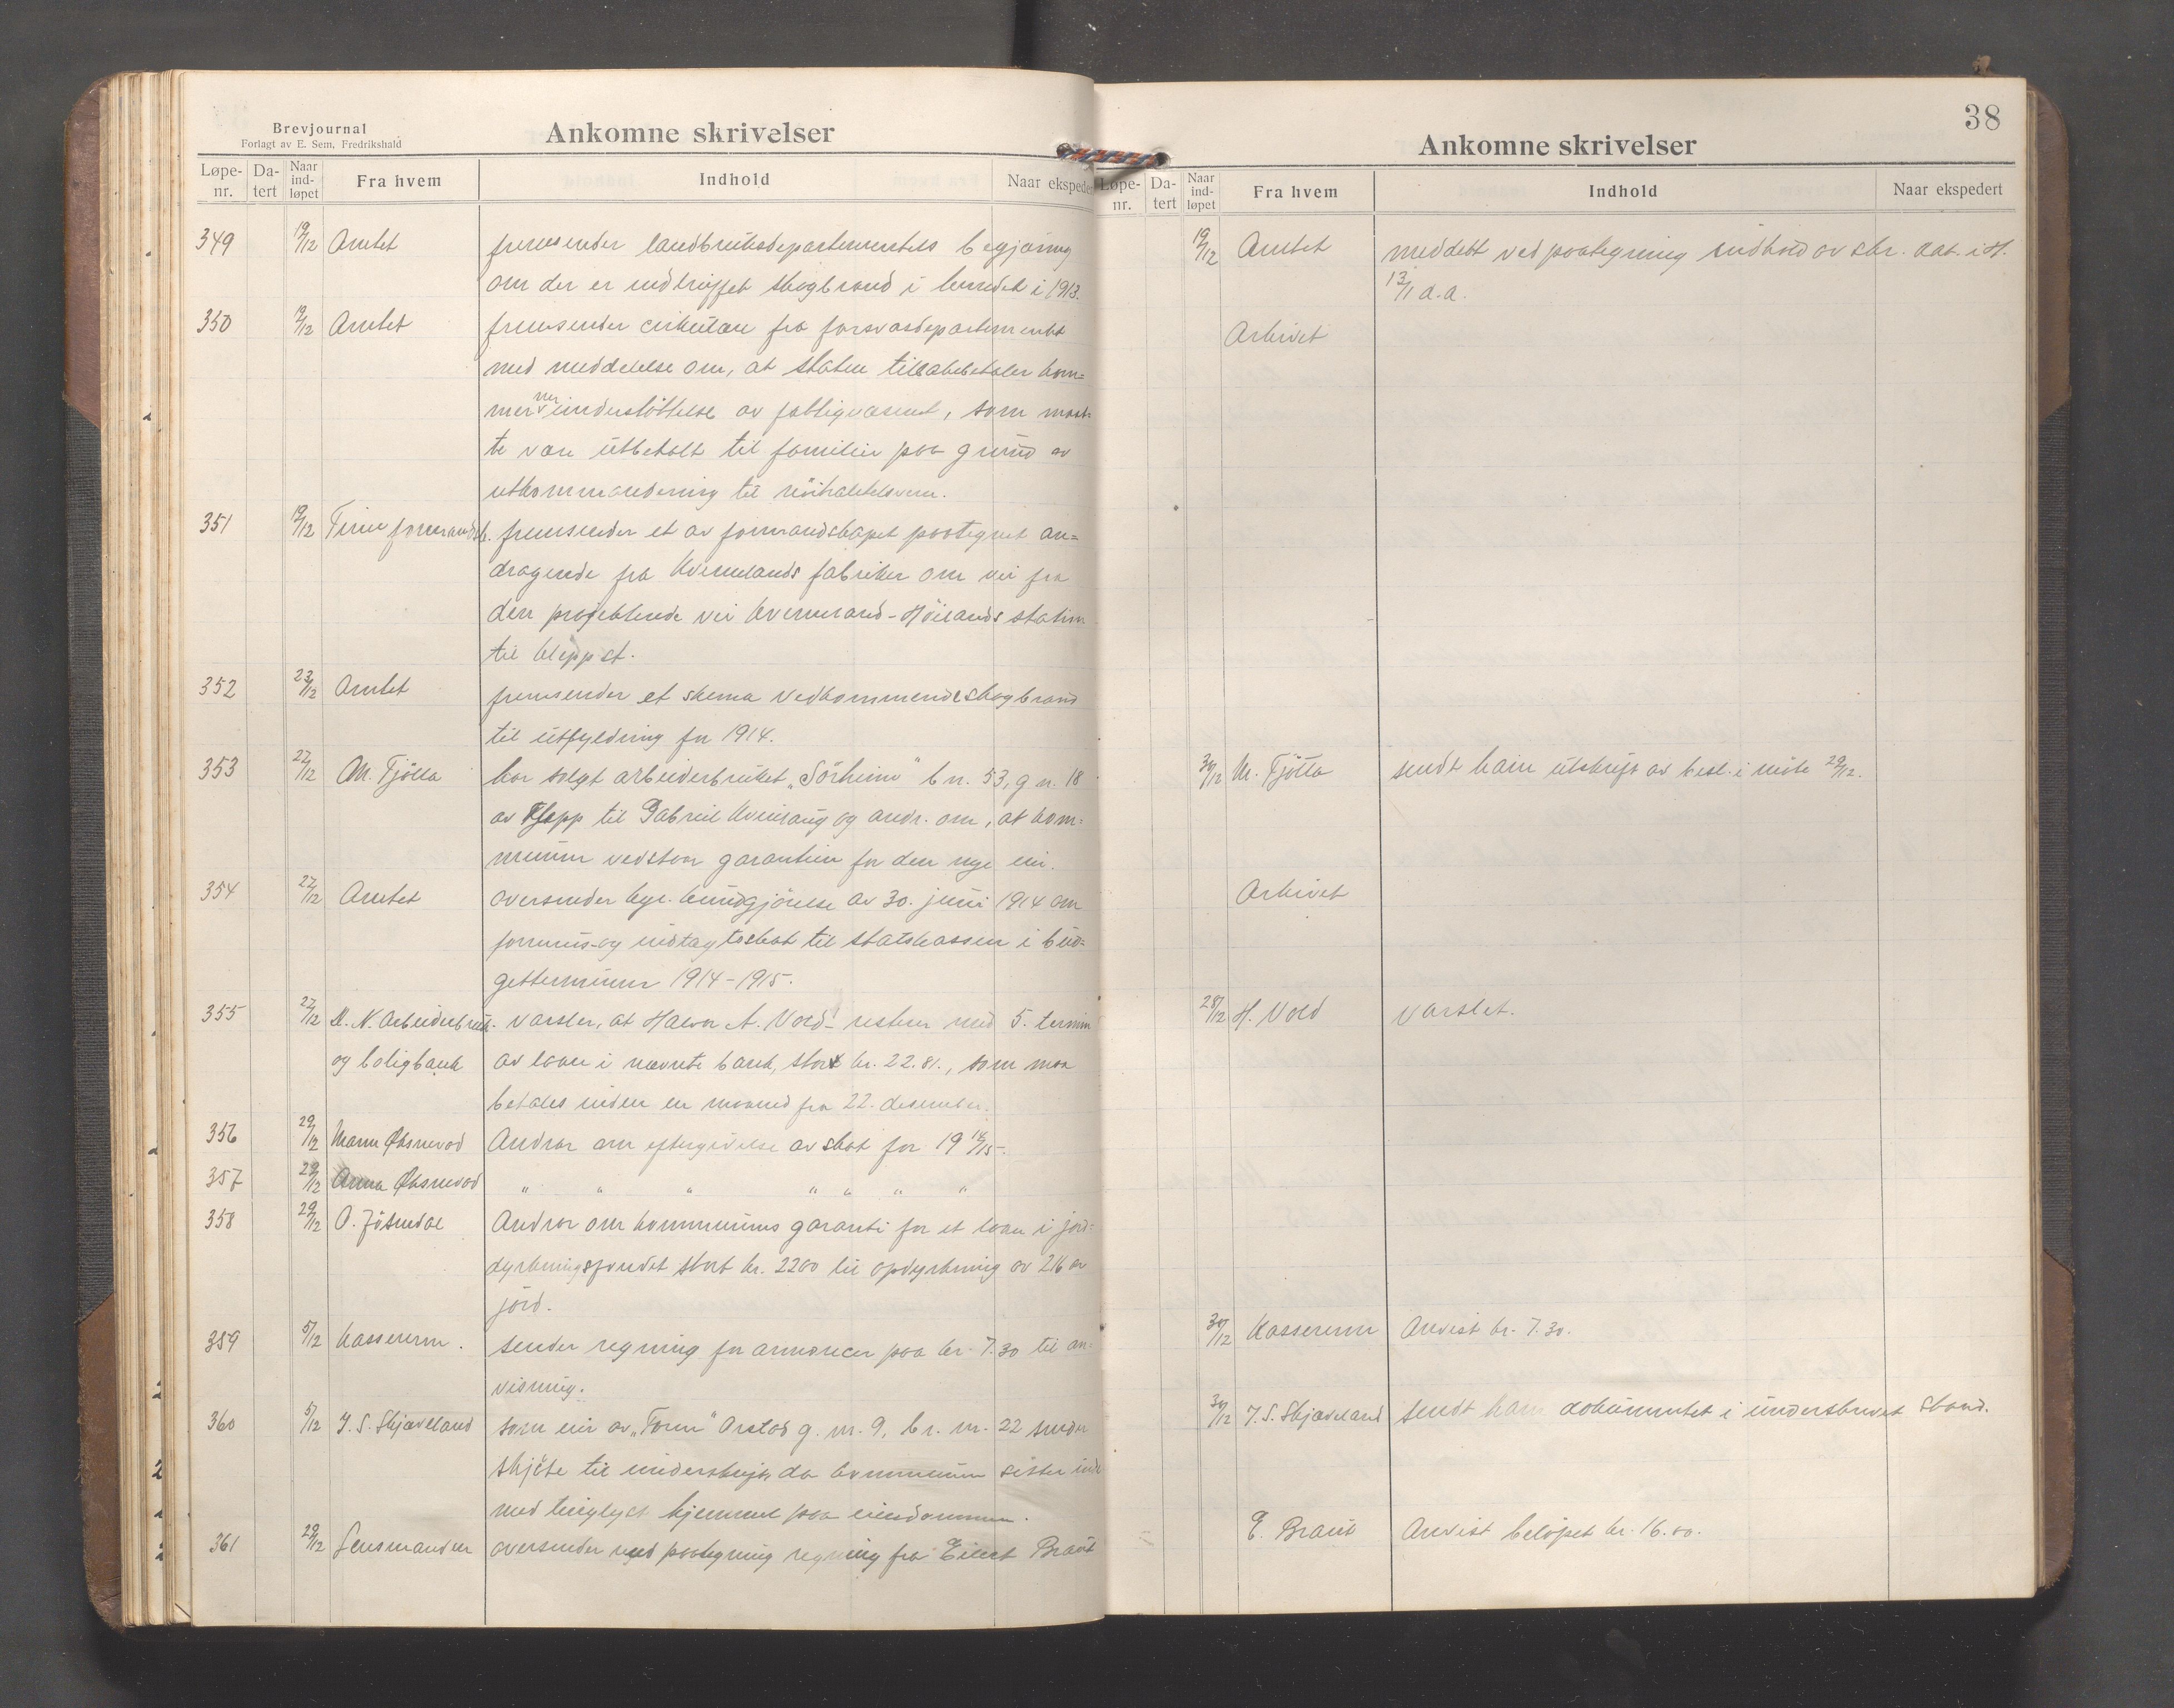 Brevjournal
Forlagt av E. Sem, Fredrikshald
Ankomne skrivelser
Løpe-nr. Da-tert Naar ind-løpet Fra hvem Indhold Naar ekspedert
349 19/12 Amtet fremsender landbruksdepartementets begjæring
om der er indtruffet skogbrand i herredet i 1913.
350 19/12 Amtet fremsender cirkulære fra forsvarsdepartementet
med meddelelse om, at staten tilbakebetaler kom-
munen understøttelse av fattigvæsenet, som maat-
te være utbetalt til familier paa grund av
utkommandering til nöitralitetsvern.
351 19/12 Time formandsk. fremsender et av formandskapet paategnet an=
dragende fra Kvernelands fabriker om vei fra
den projekterede vei Kverneland-Höilands station
til Klepp st.
352 23/12 Amtet fremsender et skema vedkommende skogbrand
til utfyldning for 1914.
353 22/12 M. Tjötta har solgt arbeiderbruket „Sörheim" b n. 53, g n. 18
av Klepp til Gabriel og andr. om, at kom=
munen vedstaar garantien for den nye eier.
354 22/12 Amtet oversender kgl. kundgjörelse av 30. juni 1914 om
formues-og indtægtsskat til statskassen i bud=
getterminen 1914-1915.
355 22/12 D. N. Arbeiderbruk- varsler, at Halvor A. Vold resterer med 5. termin
og boligbank av laan i nævnte bank, stor kr. 22.81., som maa
betales inden en maaned fra 22. desember.
356 29/12 Øksnevad Andrar om eftergivelse av skat for 19 14/15.
357 29/12 Anna Øksnevad " " " " " " "
358 29/12 O. Jösendal Andrar om kommunens garanti for et laan i jord=
dyrkningsfondet stort kr. 2200 til opdyrkning av 26 ar
jord.
359 5/12 Kassereren. sender regning for annoncer paa kr. 7.30 til an=
visning.
360 5/12 J. S. Skjæveland som eier av „Torm" Orstad g. nr. 9, br. nr. 22 sender
skjöte til underskrift, da kommunen sitter inde
med tinglyst hjemmel paa eiendommen.
361 29/12 Lensmanden oversender med paategning regning fra Eilert Braut
38
Ankomne skrivelser
Løpe-nr. Da-tert Naar ind-løpet Fra hvem Indhold Naar ekspedert
19/12 Amtet meddelt ved paategning indhold av skr. dat. i H.
13/11 d.a.
Arkivet
30/12 M. Tjötta sendt ham utskrift av besl. i möte 29/12.
Arkivet
28/12 H. Vold varslet.
30/12 Kassereren Anvist kr. 7.30.
30/12 J. S. Skjæveland sendt ham dokumentet i underskrevet stand.
E. Braut Anvist belöpet kr. 16.00.